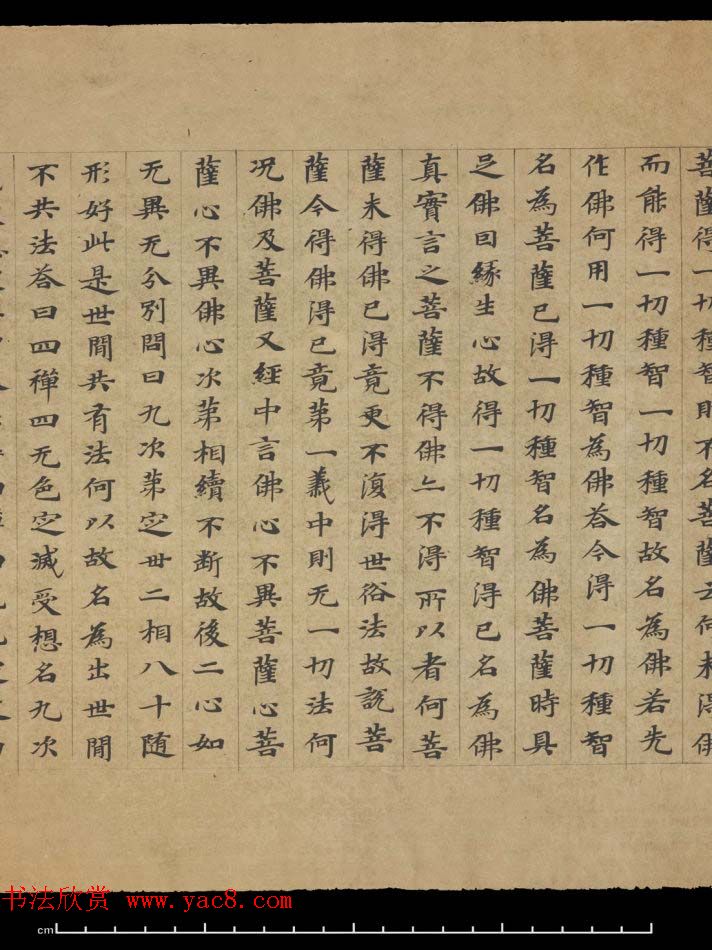 菩薩得一切種智則不名菩薩云何未得佛
而能得一切種智一切種智故名為佛若先
作佛何用一切種智為佛荅今得一切種智
名為菩薩已得一切種智名為佛菩薩時具
足佛囙緣生心故得一切種智得已名為佛
真實言之菩薩不得佛亦不得所以者何菩
薩未得佛已得竟更不復得世俗法故說菩
薩今得佛得已竟苐一義中則无一切法何
况佛及菩薩又經中言佛心不異菩薩心菩
薩心不異佛心次苐相續不斷故後二心如
无異无分別問曰九次苐定卅二相八十随
形好此是世間共有法何以故名為出世間
不共法荅曰四禪四无色定滅受想名九次
书法欣赏 www.yac8.com
cm